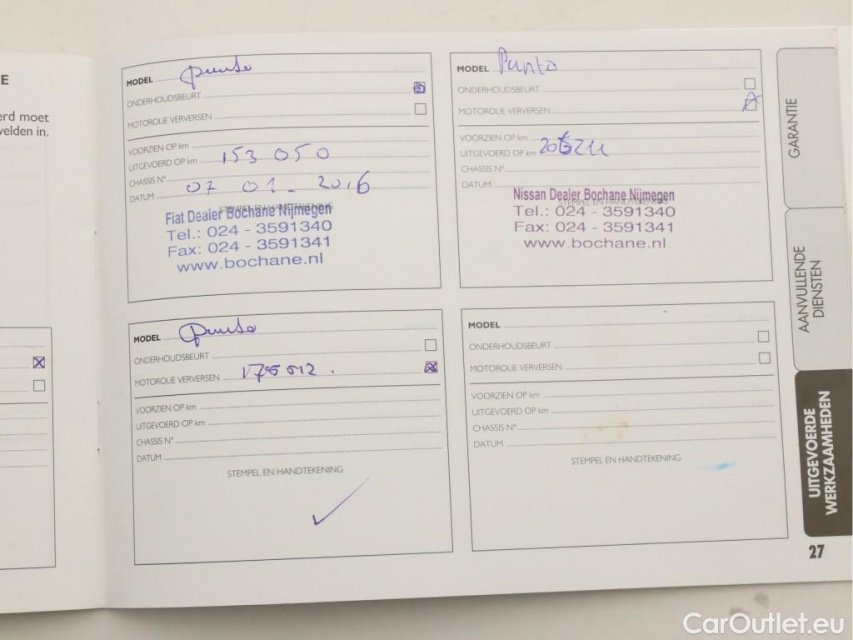 E
erd moet
velden in.
MODEL Punto
ONDERHOUDSBEURT
MOTOROLIE VERVERSEN
VOORZIEN OP km
UITGEVOERD OP km 153 050
CHASSIS N°
DATUM 07 01 - 2016
STEMPEL EN HANDTEKENING
Fiat Dealer Bochane Nijmegen
Tel.: 024 - 3591340
Fax: 024 - 3591341
www.bochane.nl
MODEL Punto
ONDERHOUDSBEURT
MOTOROLIE VERVERSEN
VOORZIEN OP km
UITGEVOERD OP km
CHASSIS N°
DATUM
STEMPEL EN HANDTEKENING
Nissan Dealer Bochane Nijmegen
Tel.: 024 - 3591340
Fax: 024 - 3591341
www.bochane.nl
MODEL Punto
ONDERHOUDSBEURT
MOTOROLIE VERVERSEN
VOORZIEN OP km
UITGEVOERD OP km
CHASSIS N°
DATUM
STEMPEL EN HANDTEKENING
MODEL
ONDERHOUDSBEURT
MOTOROLIE VERVERSEN
VOORZIEN OP km
UITGEVOERD OP km
CHASSIS N°
DATUM
STEMPEL EN HANDTEKENING
GARANTIE
AANVULLENDE
DIENSTEN
UITGEVOERDE
WERKZAAMHEDEN
27
CarOutlet.eu